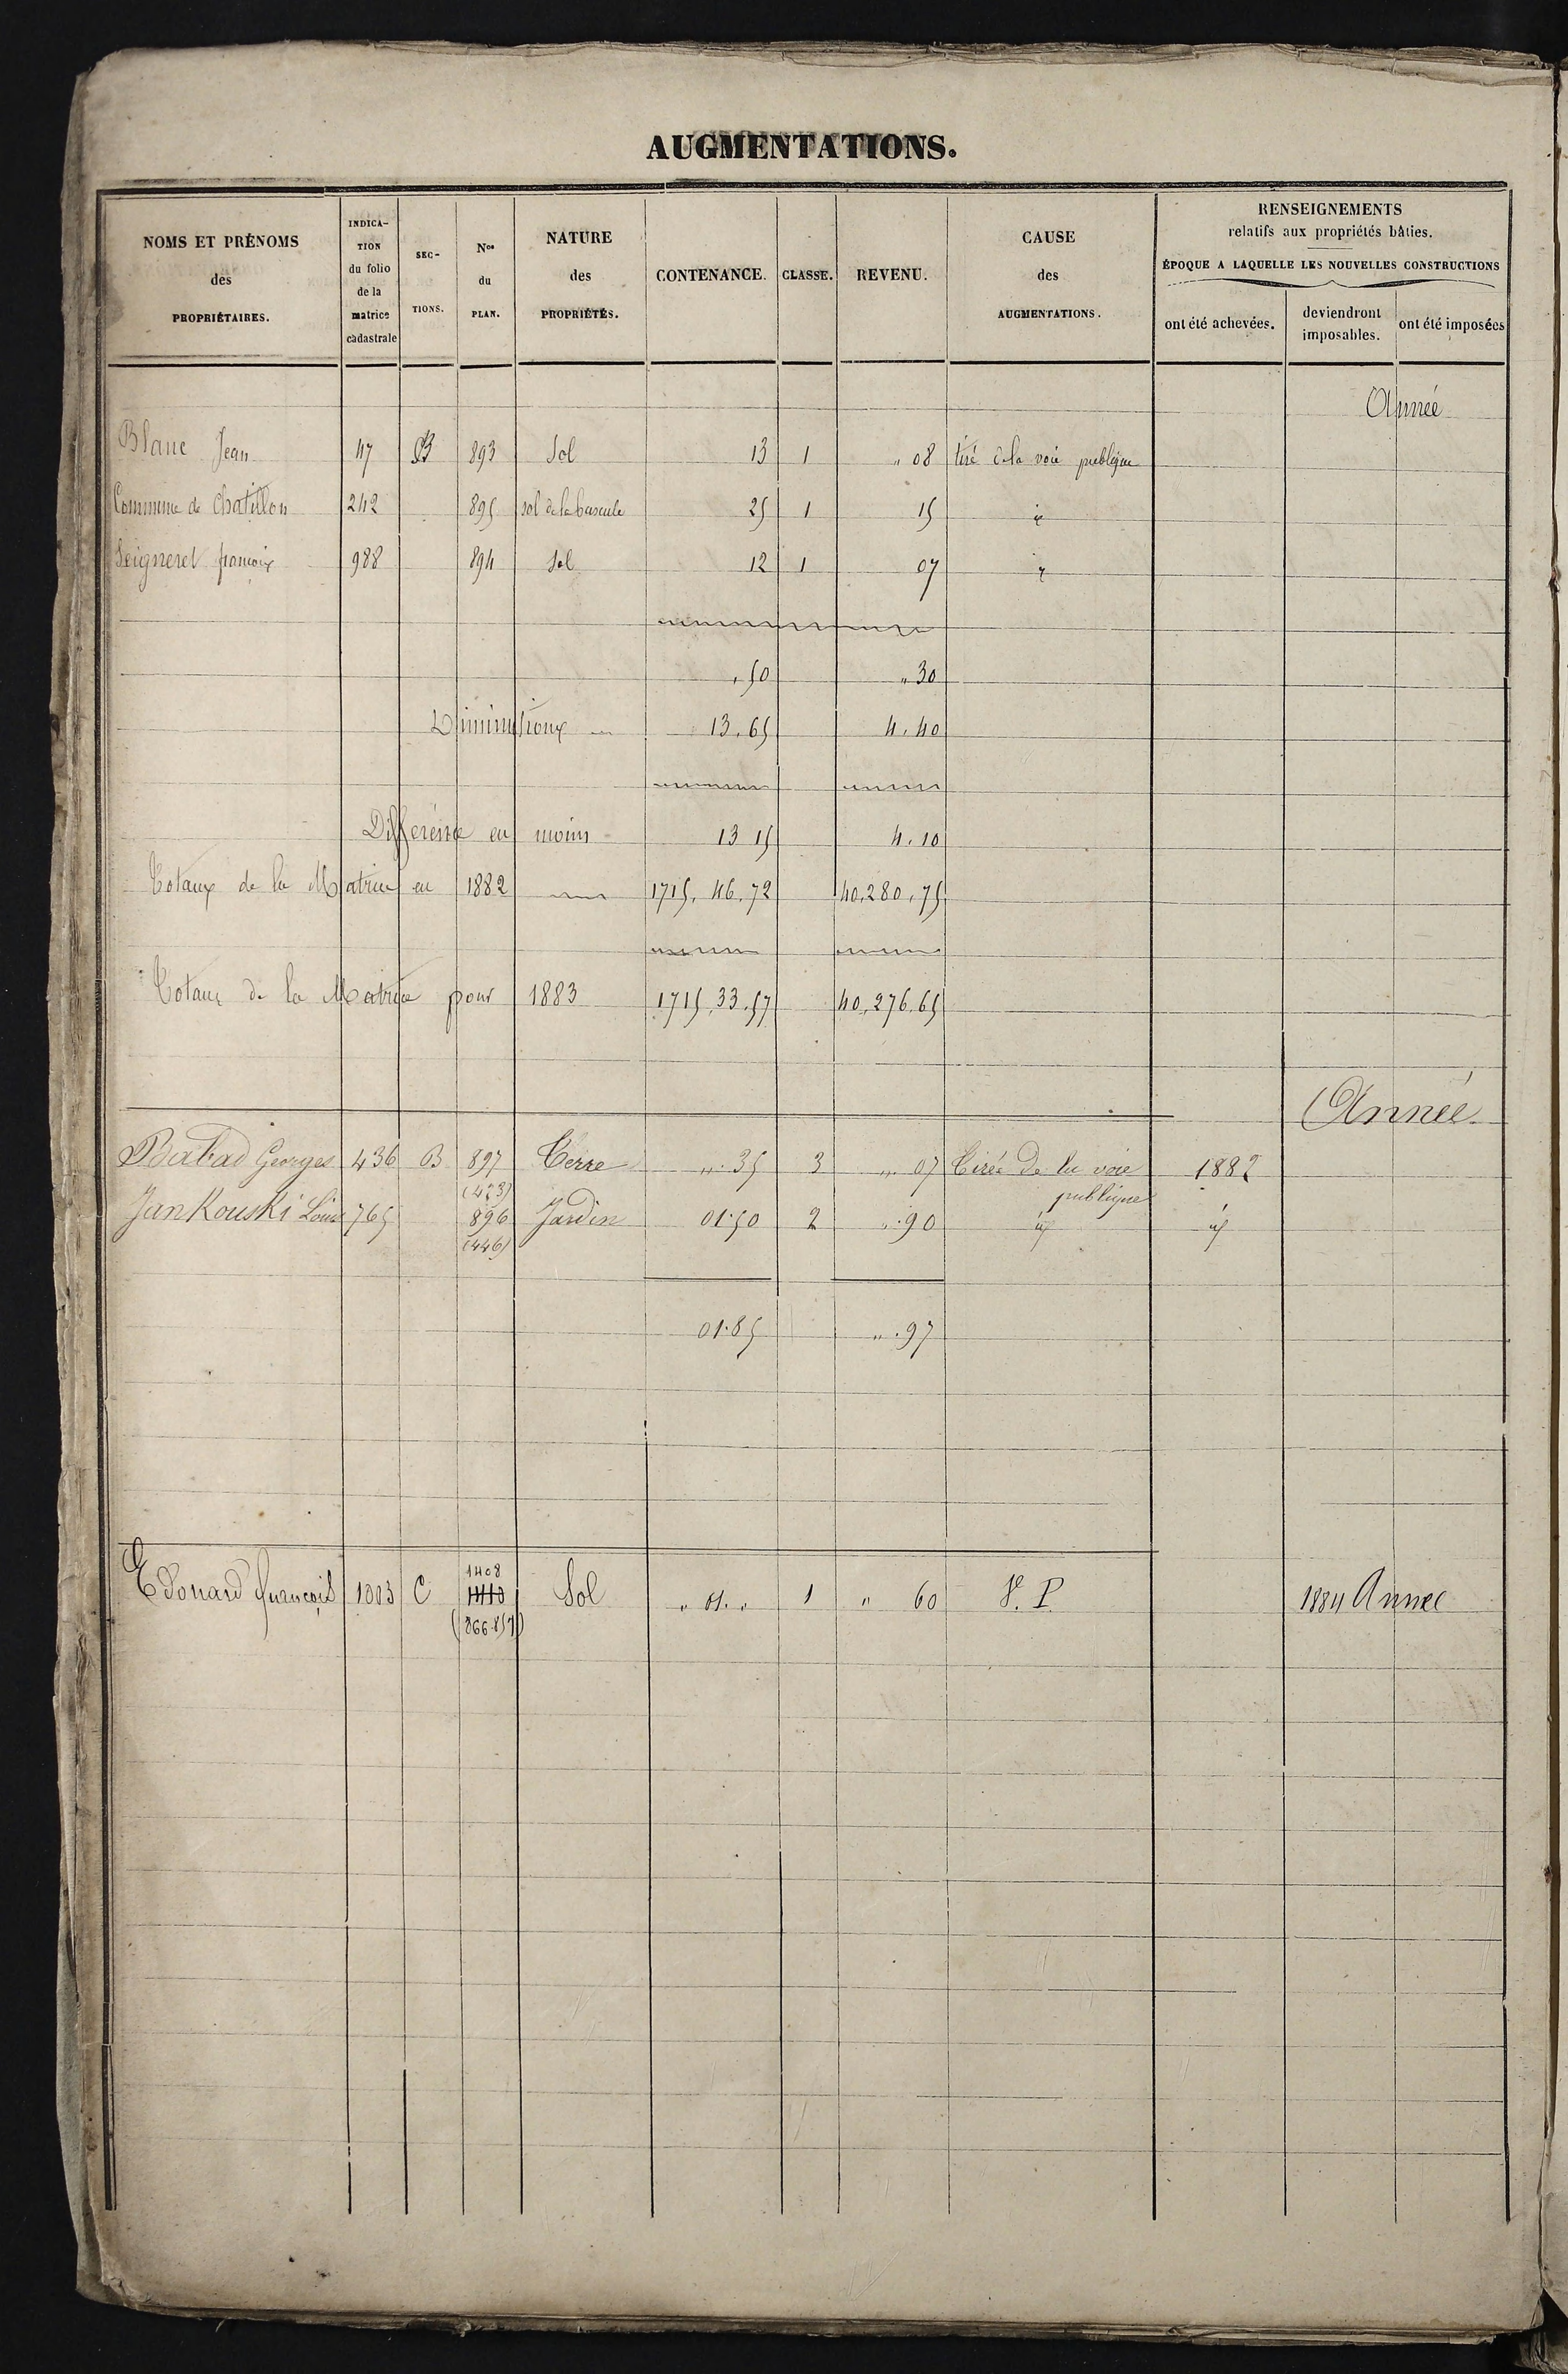 AUGMENTATIONS.
NOMS ET PRÉNOMS des PROPRIÉTAIRES.
INDICA-TION du folio de la matrice cadastrale
SEC-TIONS.
Nos du PLAN.
NATURE des PROPRIÉTÉS.
CONTENANCE.
CLASSE.
REVENU.
CAUSE des AUGMENTATIONS.
RENSEIGNEMENTS
relatifs aux propriétés bâties.
ÉPOQUE A LAQUELLE LES NOUVELLES CONSTRUCTIONS
ont été achevées.
deviendront imposables.
ont été imposées
Année
Blanc Jean 47 B 893 Sol 13 1 " 08 tiré de la voie publique
Commune de Chatillon 242 895 sol de la bascule 25 1 15 id
Seigneret françois 988 894 Sol 12 1 07 id
, 50 " 30
Diminutions 13,65 4,40
Différence en moins 13 15 4,10
Totaux de la Matrice en 1882 1715,46,72 40,280,75
Totaux de la Matrice pour 1883 1715,33,57 40,276.65
Année
Babad Georges 436 B 897 Terre " . 35 3 " . 07 Tirée de la voie 1882
(423) publique
Jankouski Louis 765 896 Jardin 01.50 2 " . 90 id id
(446)
01.85 " . 97
1408
Edouard françois 1003 C Sol " 01. " 1 " 60 V. P. 1884 Année
(866-857)